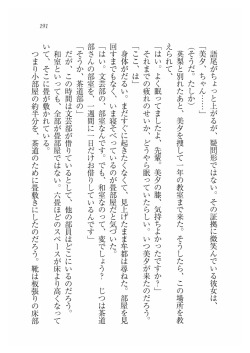 291
語尾が上ずっているが、疑問形ではない。その証拠に微笑んでいる彼女は、
「美夕、ちゃん……」
（そうだ、たしか）
英梨と別れたあと、美夕を捜して一年の教室まで来た。そうしたら、この場所を教
えられて、
「はい。よく眠ってましたよ、先輩。美夕の膝、気持ちよかったですか？」
それまでの疲れのせいか、どうやら眠っていたらしい。いつ美夕が来たのだろう。
「ここ、は」
身体がだるい。まだすぐに起きたくなくて、見上げたまま卑都は尋ねた。部屋を見
回すまでもなく、いま寝そべっているのが畳部屋だと気づいた。
「はい。文芸部の、部室なんです。でも、和室なのって、変でしょう？　じつは茶道
部さんの部室を、一週間に一日だけお借りしているんです」
「そうか、茶道部の」
だが、この時間は文芸部が借りているとして、他の部員はどこにいるのだろう。
和室といっても、全部が畳部屋ではない。六畳ほどのスペースが床より高くなって
いて、そこに畳が敷かれている。
つまり小部屋の約半分を、茶道のために畳敷きにしたのだろう。靴は板張りの床部